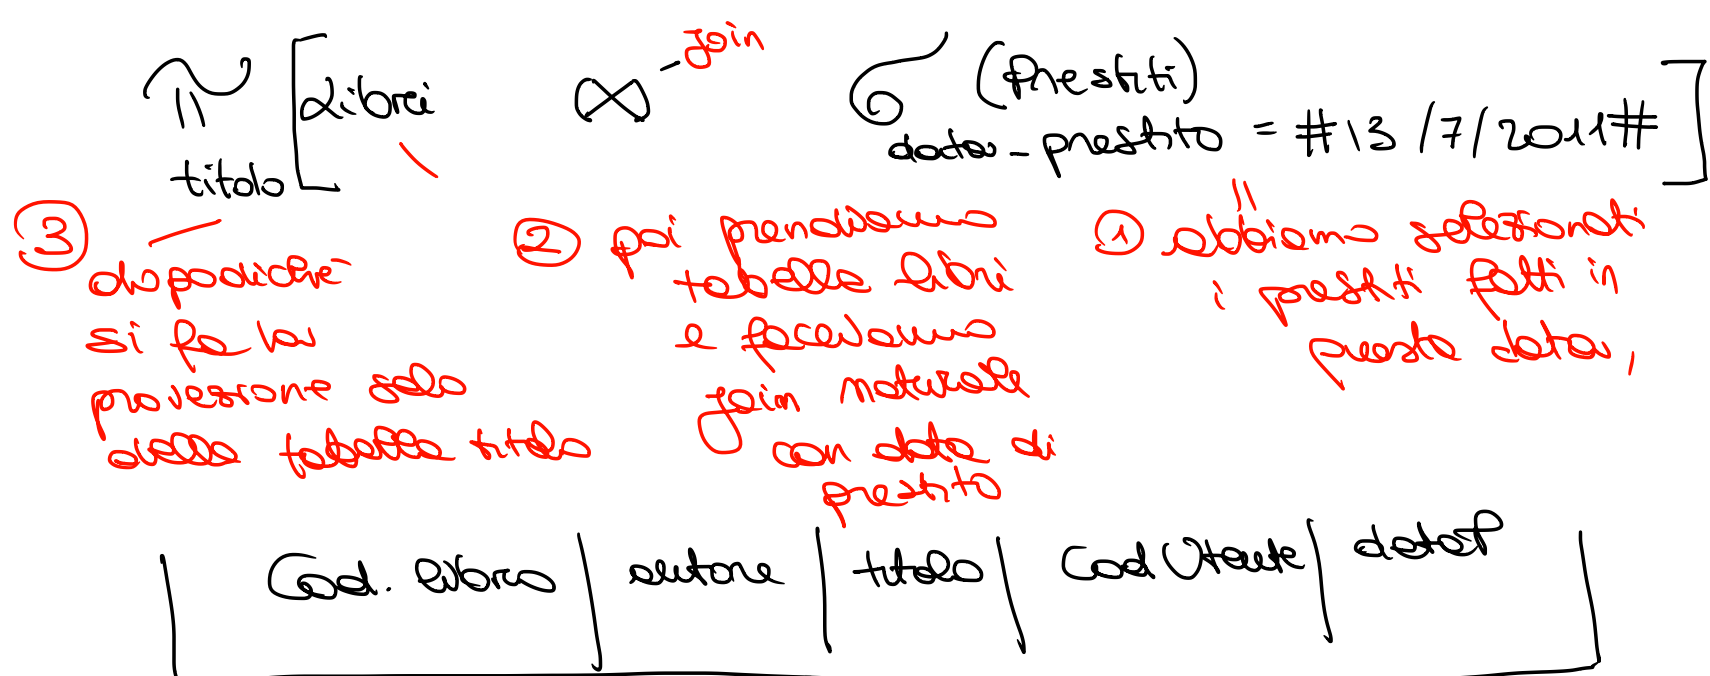 π titolo [Libri ⋈ - join σ (Prestiti) data_prestito = #13/7/2011#]
③ dopodiché
si fa la
proiezione solo
della tabella titolo
② poi prendiamo
tabella libri
e facciamo
join naturale
con data di
prestito
① abbiamo selezionati
i prestiti fatti in
questa data,
Cod. libro | autore | titolo | Cod Utente | dataP